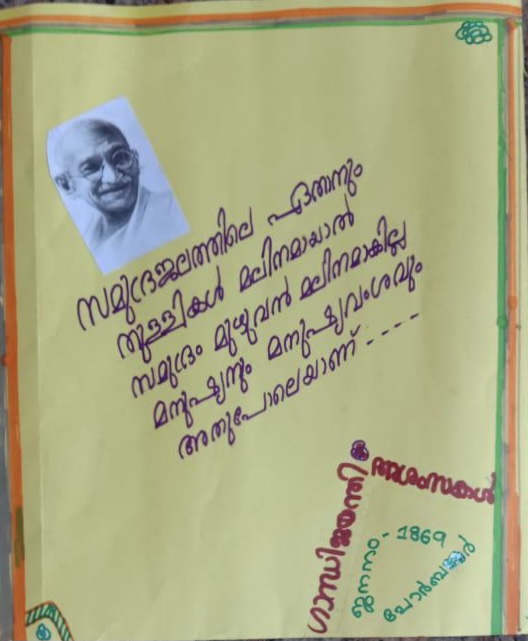 സമുദ്രജലത്തിലെ ഏതാനും
തുള്ളികൾ മലിനമായാൽ
സമുദ്രം മുഴുവൻ മലിനമാകില്ല
മനുഷ്യനും മനുഷ്യവംശവും
അതുപോലെയാണ് ----
ഗാന്ധിജയന്തി ആശംസകൾ
ജനനം - 1869
പോർബന്ദർ